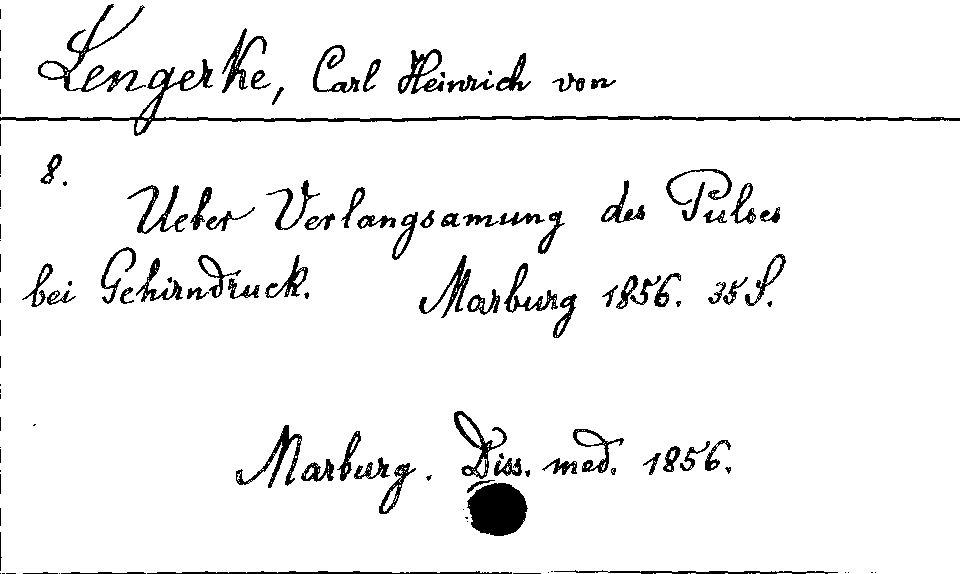 Lengerke, Carl Heinrich von
8.
Ueber Verlangsamung des Pulses
bei Gehirndruck. Marburg 1856. 35 S.
Marburg. Diss. med. 1856.